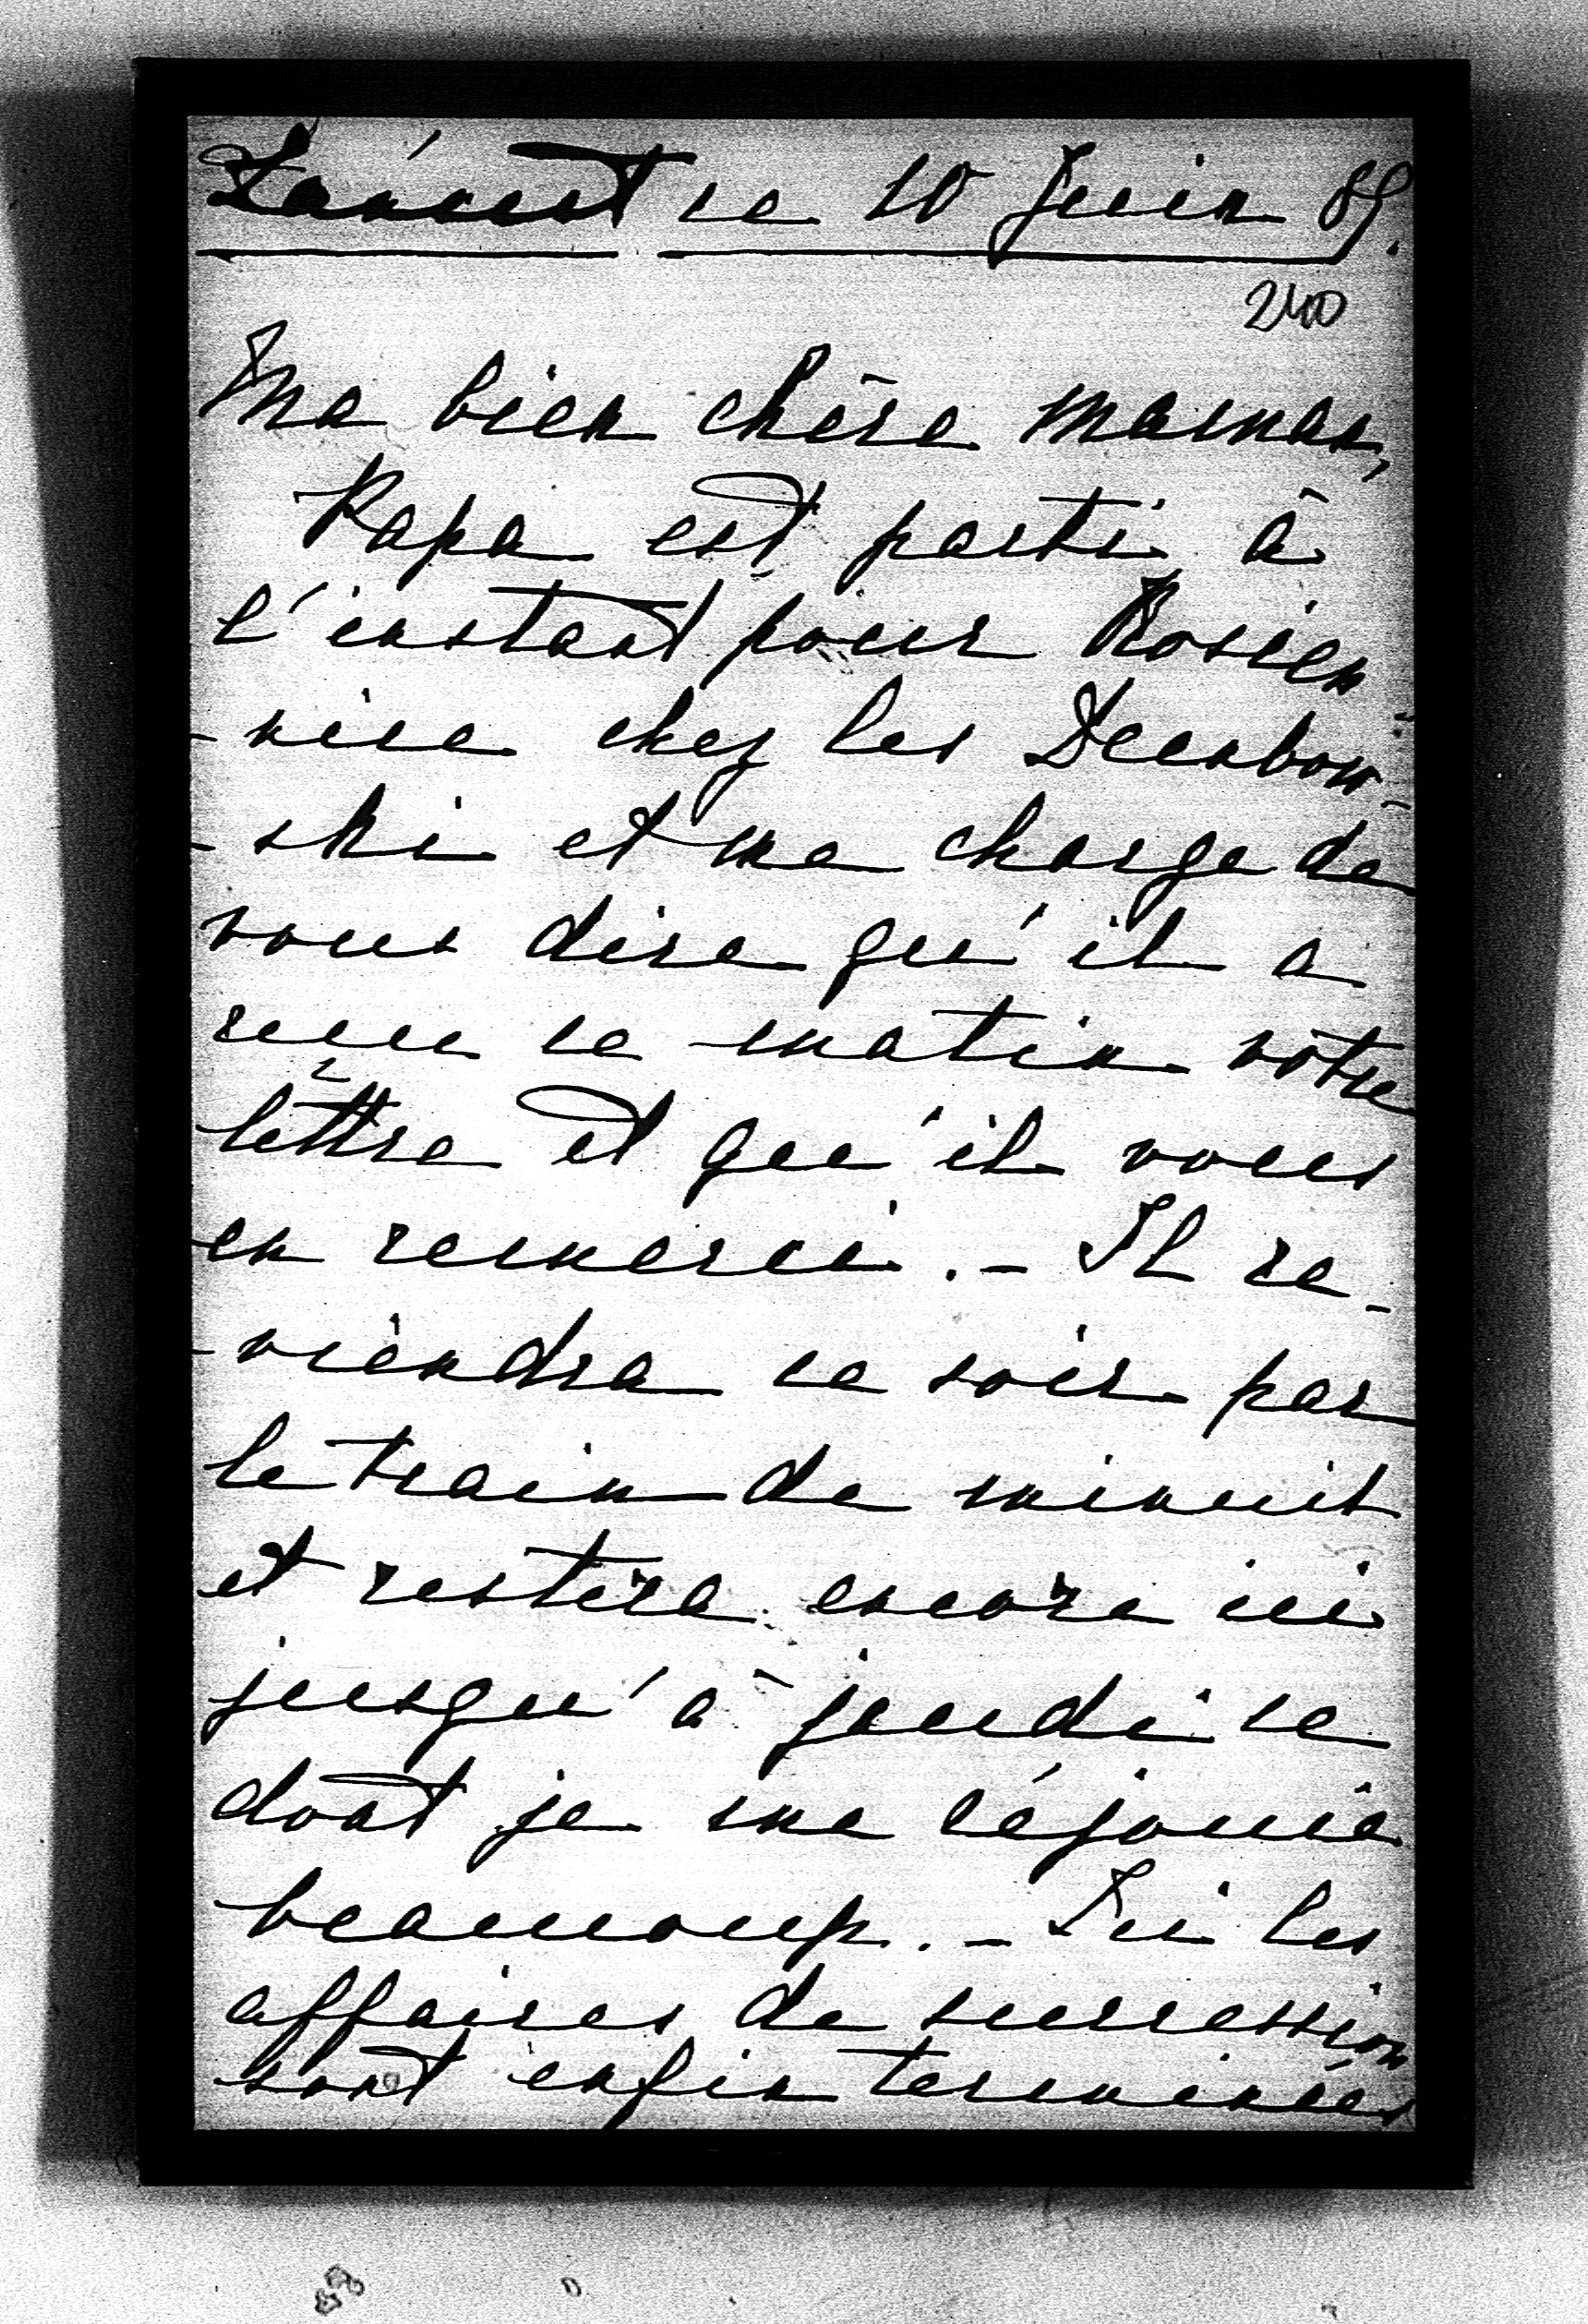 Łańcut ce 10 Juin 89.
240
Ma bien chère maman,
Papa est parti à
l'instant pour Rosien-
-nice chez les Dembow-
-ski et me charge de
vous dire qu'il a
reçu ce matin vôtre
lèttre et qu'il vous
en remerci. - Il re-
-viendra ce soir par
le train de minuit
et restera encore ici
jusqu'à jeudi ce
dont je me réjouie
beaucoup. - Ici les
affaires de succession
sont enfin terminées